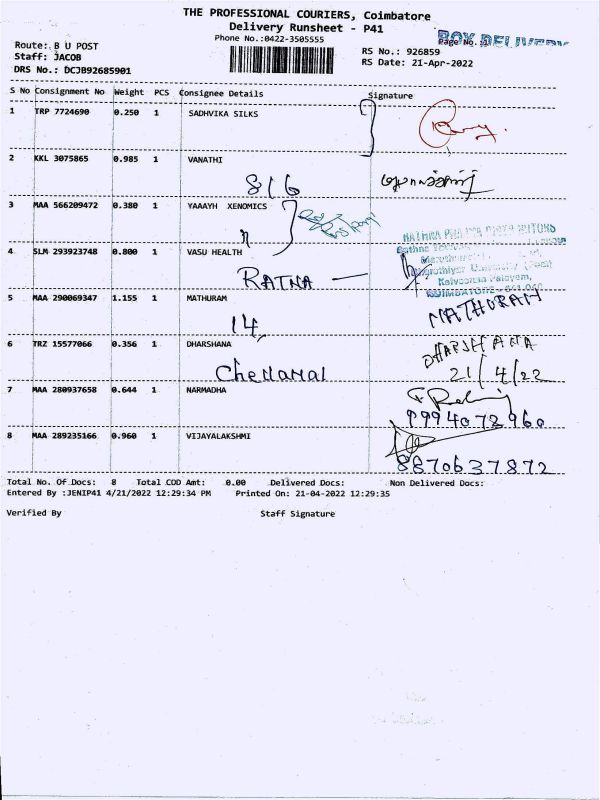 THE PROFESSIONAL COURIERS, Coimbatore
Delivery Runsheet - P41
Phone No.:0422-3505555
BOX DELIVERY
Page No.
Route: B U POST
Staff: JACOB
DRS No.: DCJB92685901
RS No.: 926859
RS Date: 21-Apr-2022
S No Consignment No Weight PCS Consignee Details Signature
1 TRP 7724690 0.250 1 SADHVIKA SILKS
2 KKL 3075865 0.985 1 VANATHI
816
3 MAA 566209472 0.380 1 YAAAYH XENOMICS
4 SLM 293923748 0.800 1 VASU HEALTH
RATNA —
Kalveeram Palayam,
COIMBATORE - 641 046
5 MAA 290069347 1.155 1 MATHURAM
MATHURAM
14,
6 TRZ 15577066 0.356 1 DHARSHANA
DHARSHANA
21/4/22
Chellamal
7 MAA 280937658 0.644 1 NARMADHA
9994072960
8 MAA 289235166 0.960 1 VIJAYALAKSHMI
8870637872
Total No. Of Docs: 8 Total COD Amt: 0.00 Delivered Docs: Non Delivered Docs:
Entered By :JENIP41 4/21/2022 12:29:34 PM Printed On: 21-04-2022 12:29:35
Verified By Staff Signature